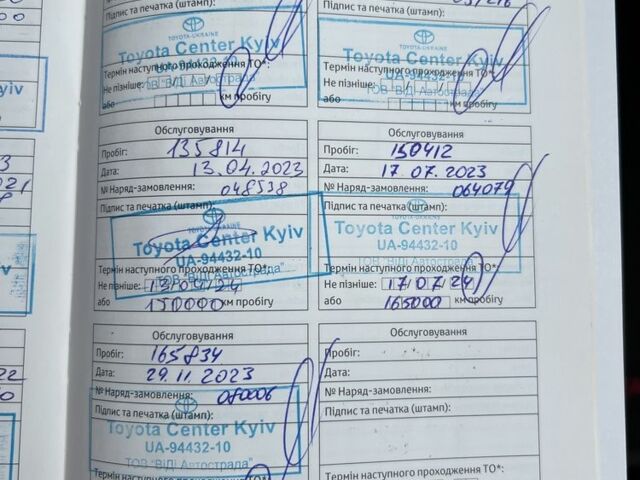 Підпис та печатка (штамп):
TOYOTA-UKRAINE
Toyota Center Kyiv
UA-94432-10
Термін наступного проходження ТО*:
ТОВ "ВіДі Автострада"
Не пізніше:
або км пробігу
Підпис та печатка (штамп):
TOYOTA-UKRAINE
Toyota Center Kyiv
UA-94432-10
Термін наступного проходження ТО*:
ТОВ "ВіДі Автострада"
Не пізніше:
або км пробігу
Обслуговування
Пробіг: 135814
Дата: 13.04.2023
№ Наряд-замовлення: 048538
Підпис та печатка (штамп):
Toyota Center Kyiv
UA-94432-10
ТОВ "ВіДі Автострада"
Термін наступного проходження ТО*:
Не пізніше: 13/04/24
або 150000 км пробігу
Обслуговування
Пробіг: 150412
Дата: 17.07.2023
№ Наряд-замовлення: 064079
Підпис та печатка (штамп):
Toyota Center Kyiv
UA-94432-10
ТОВ "ВіДі Автострада"
Термін наступного проходження ТО*:
Не пізніше: 17/07/24
або 165000 км пробігу
Обслуговування
Пробіг: 165834
Дата: 29.11.2023
№ Наряд-замовлення: 080006
Підпис та печатка (штамп):
Toyota Center Kyiv
UA-94432-10
ТОВ "ВіДі Автострада"
Термін наступного проходження ТО*:
Обслуговування
Пробіг:
Дата:
№ Наряд-замовлення:
Підпис та печатка (штамп):
Термін наступного проходження ТО*: